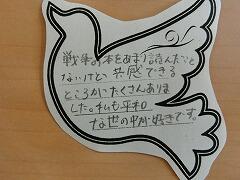 戦争の本をあまり読んだこと
ないけど共感できる
ところがたくさんありま
した。私も平和
な世の中が好きです。